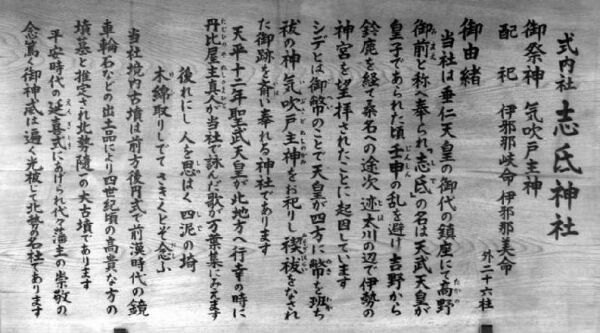 式内社 志氐神社
御祭神 気吹戸主神
配祀 伊邪那岐命 伊邪那美命
外二十六柱
御由緒
当社は垂仁天皇の御代の鎮座にて高野
御前と称へ奉られ、「志氐」の名は天武天皇が
皇子であられた頃 壬申の乱を避け 吉野から
鈴鹿を経て桑名への途次 迹太川の辺で伊勢の
神宮を望拝されたことに起因しています
シデとは御幣のことで天皇が四方に幣を班ち
祓の神 気吹戸主神をお祀りし 禊祓をなされ
た御跡を斎い奉れる神社であります
天平十二年聖武天皇が北地方へ行幸の時に
丹比屋主真人が当社で詠んだ歌が万葉集にみえます
後れにし 人を思はく 四泥の埼
木綿取りしでて さきくとぞ念ふ
当社境内古墳は前方後円式で前漢時代の鏡
車輪石などの出土品により四世紀頃の高貴な方の
墳墓と推定され北勢随一の大古墳であります
平安時代の延喜式にあげられ代々藩主の崇敬の
念篤く御神威は遍く光被して北勢の名社であります